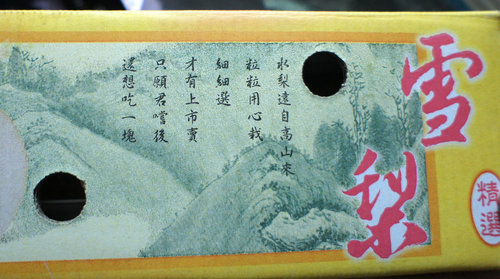 雪梨
精選
水梨遠自高山來
粒粒用心栽
細細選
才有上市賣
只願君嚐後
還想吃一塊